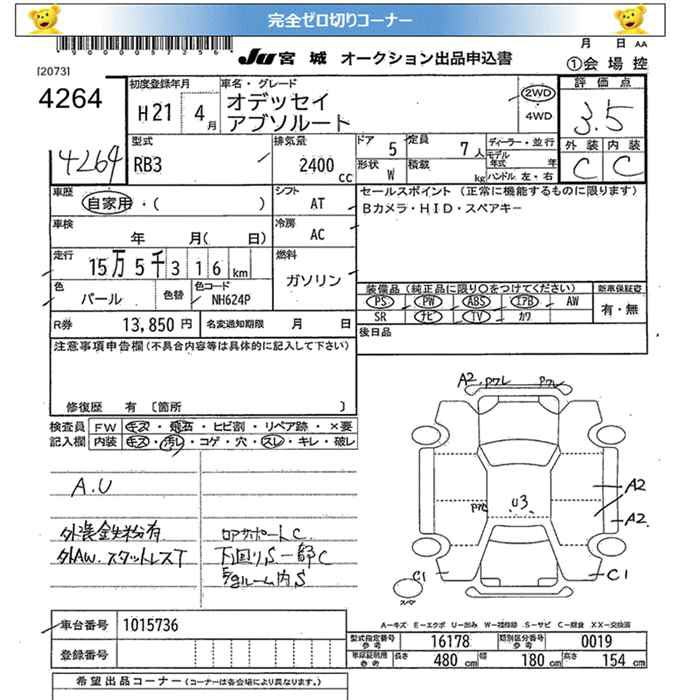 完全ゼロ切りコーナー
JU 宮城 オークション出品申込書
月 日 AA
①会場控
[2073]
4264
4264
初度登録年月
H21 4月
車名・グレード
オデッセイ
アブソルート
2WD
4WD
評価点
3.5
外装 内装
C C
型式
RB3
排気量
2400 cc
ドア 5
定員 7人
形状 W
積載 kg
ディーラー・並行
モデル年式 年
ハンドル 左・右
車歴
自家用・( )
シフト AT
車検
年 月( 日)
冷房 AC
走行
15万5千316km
燃料
ガソリン
色
パール
色替
色コード
NH624P
セールスポイント (正常に機能するものに限ります)
Bカメラ・HID・スペアキー
装備品 (純正品に限り○をつけてください)
新車保証書
PS PW ABS エアB AW
SR ナビ TV カワ
有・無
後日品
R券 13,850円
名変通知期限 月 日
注意事項申告欄(不具合内容等は具体的に記入して下さい)
修復歴 有 〔箇所 〕
検査員記入欄
FW キズ・飛石・ヒビ割・リペア跡・×要
内装 キズ・汚レ・コゲ・穴・スレ・キレ・破レ
A.U
外装鉄粉有
外AW.スタットレスT
コアサポートC
下回りS一部C
E/gルーム内S
A2 Pワレ Pワレ
Pワレ
U3
A2
A2
C1
C1
スペア
A－キズ E－エクボ U－凹み W－補修跡 S－サビ C－腐食 XX－交換済
車台番号 1015736
登録番号
型式指定番号 参考 16178
類別区分番号 参考 0019
車検証明書 参考
長さ 480 cm
幅 180 cm
高さ 154 cm
希望出品コーナー(コーナーは各会場により異なります)